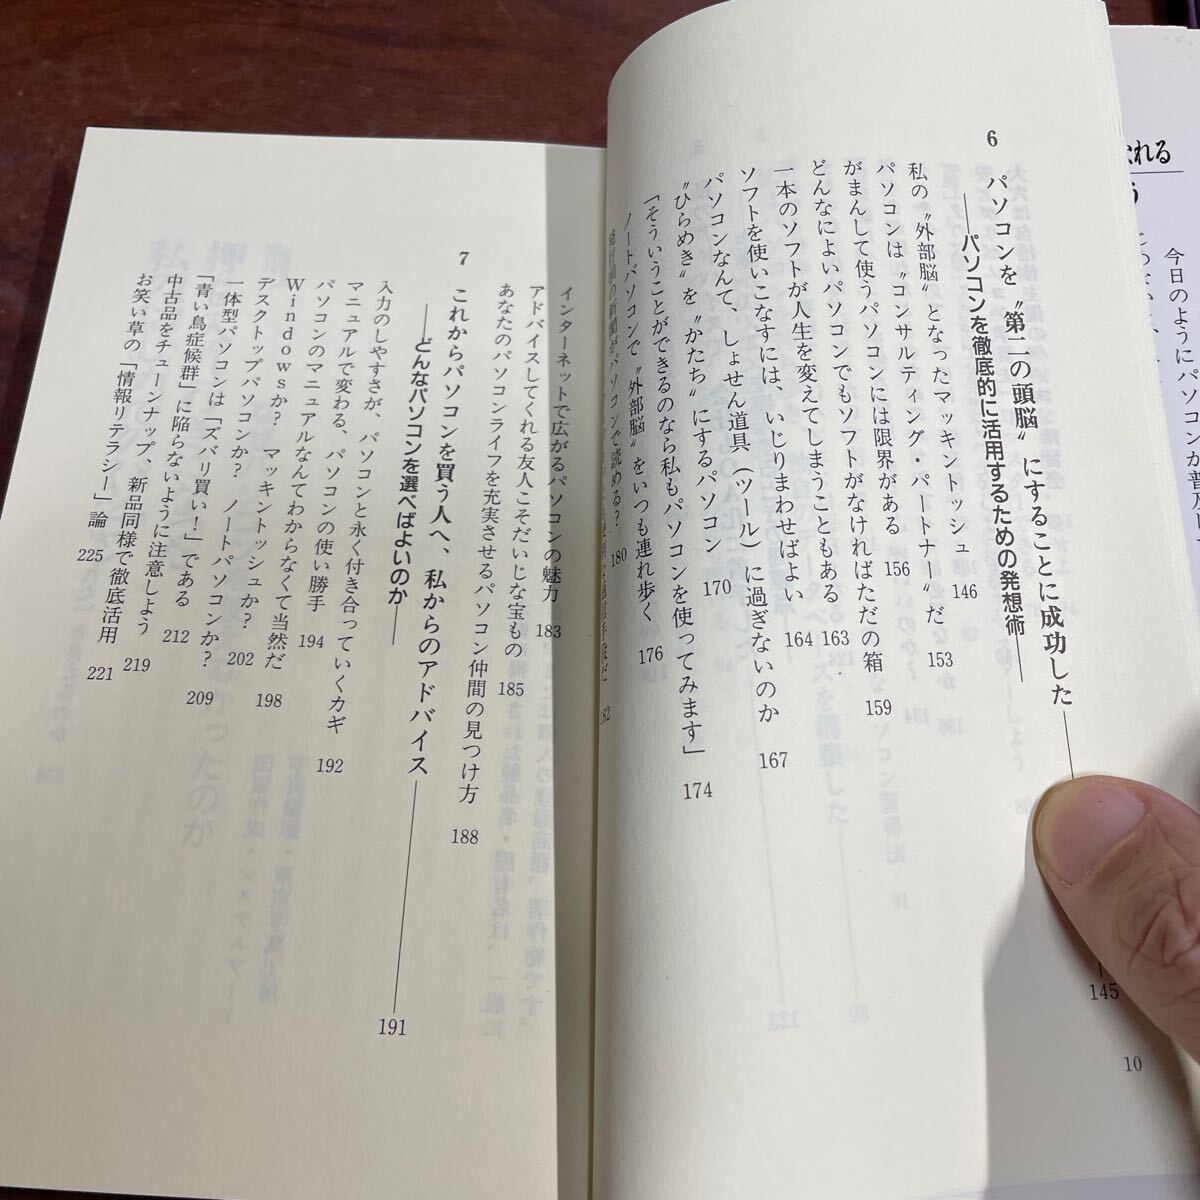 6
パソコンを〝第二の頭脳〟にすることに成功した 145
―パソコンを徹底的に活用するための発想術―
私の〝外部脳〟となったマッキントッシュ 146
パソコンは〝コンサルティング・パートナー〟だ 153
がまんして使うパソコンには限界がある 156
どんなによいパソコンでもソフトがなければただの箱 159
一本のソフトが人生を変えてしまうこともある 163
ソフトを使いこなすには、いじりまわせばよい 164
パソコンなんて、しょせん道具(ツール)に過ぎないのか 167
〝ひらめき〟を〝かたち〟にするパソコン 170
「そういうことができるのなら私もパソコンを使ってみます」 174
ノートパソコンで〝外部脳〟をいつも連れ歩く 176
の新聞がパソコンで読める? 180
182
10
インターネットで広がるパソコンの魅力 183
アドバイスしてくれる友人こそだいじな宝もの 185
あなたのパソコンライフを充実させるパソコン仲間の見つけ方 188
7
これからパソコンを買う人へ、私からのアドバイス 191
―どんなパソコンを選べばよいのか―
入力のしやすさが、パソコンと永く付き合っていくカギ 192
マニュアルで変わる、パソコンの使い勝手 194
パソコンのマニュアルなんてわからなくて当然だ 198
Windowsか? マッキントッシュか? 202
デスクトップパソコンか? ノートパソコンか? 209
一体型パソコンは「ズバリ買い!」である 212
「青い鳥症候群」に陥らないように注意しよう 219
中古品をチューンナップ、新品同様で徹底活用 221
お笑い草の「情報リテラシー」論 225
今日のようにパソコンが普及し